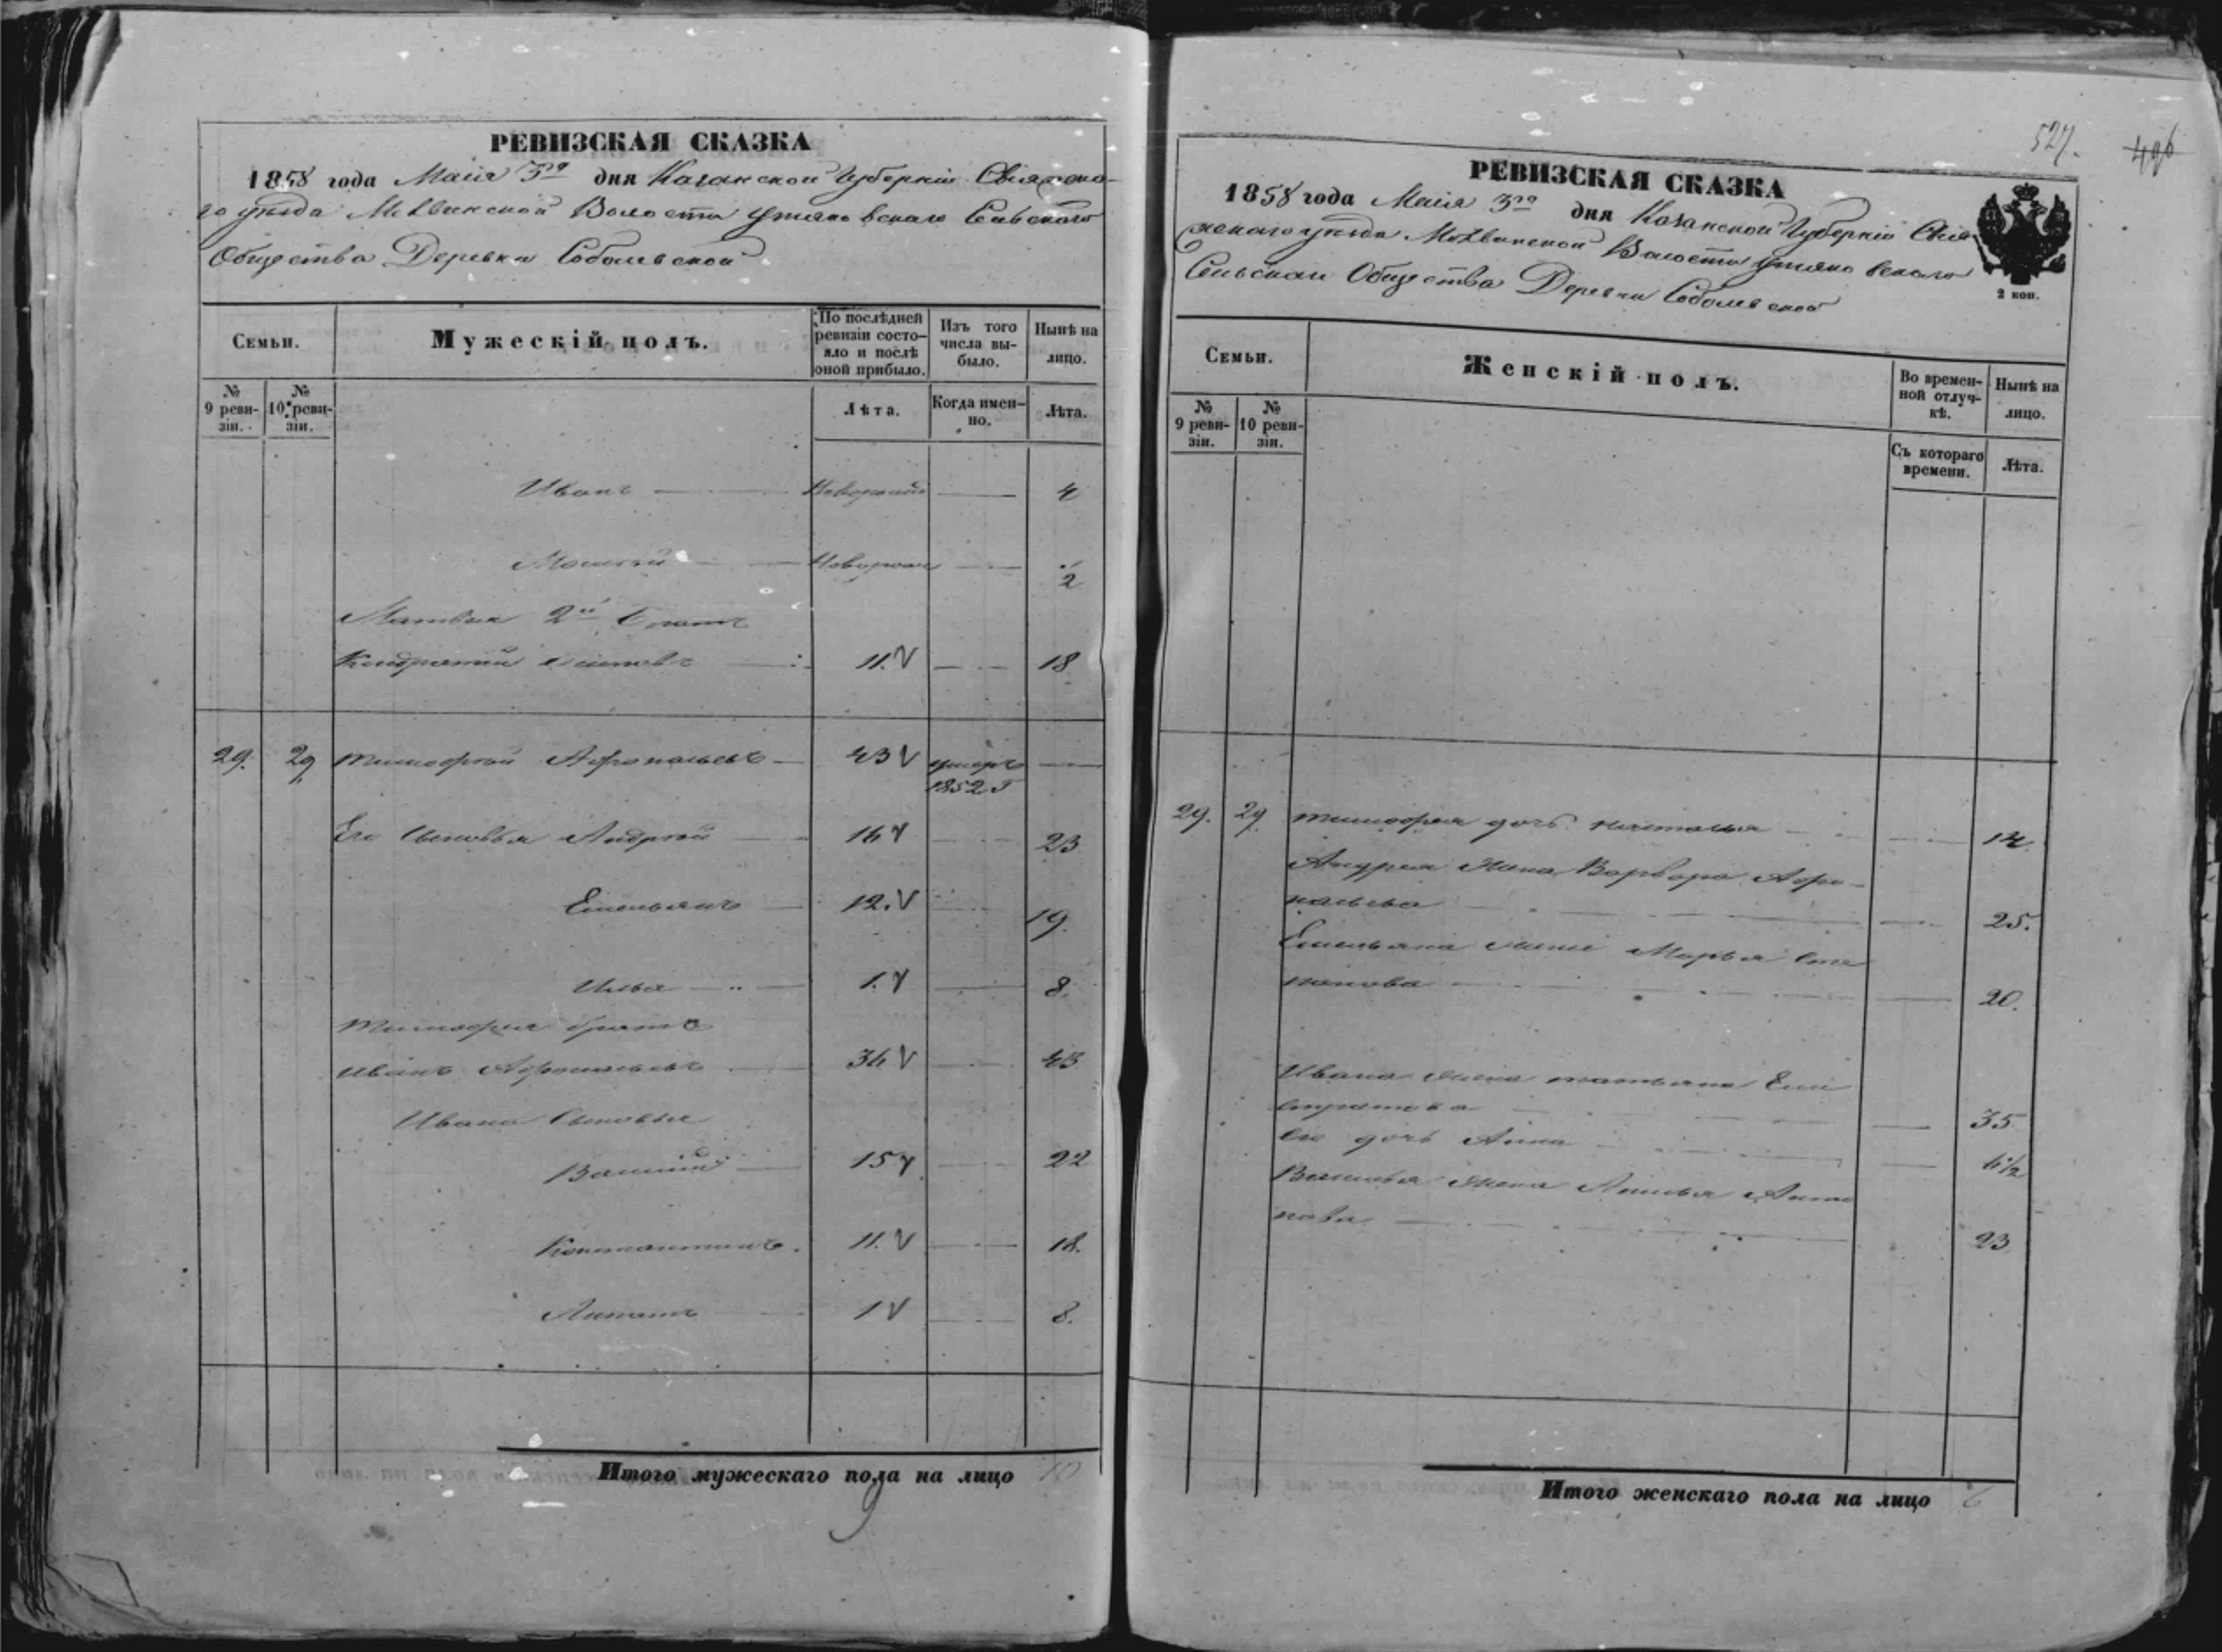 РЕВИЗСКАЯ СКАЗКА
1858 года Маія 3го дня Казанской Губерніи Свіяжска-
го уѣзда Волости Утяковскаго Сельскаго
Общества Деревни Соболевской
Семьи.
Мужескій полъ.
По послѣдней ревизіи состо-яло и послѣ оной прибыло.
Изъ того числа вы-было.
Нынѣ на лицо.
№ 9 реви-зіи.
№ 10 реви-зіи.
Лѣта.
Когда имен-но.
Лѣта.
Иванъ 4
2
Матвея 2й братъ
11. 18
29. 29 Тимофей Афонасьевъ 43 умеръ 1852 г
Его сыновья Андрей 16 23
Емельянъ 12. 19.
Илья 1. 8.
Тимофея братъ
Иванъ Афонасьевъ 36 43
Ивана сыновья
Василій 15 22
Константинъ. 11. 18.
1 8.
Итого мужескаго пола на лицо 10
9
527.
496
РЕВИЗСКАЯ СКАЗКА
1858 года Маія 3го дня Казанской Губерніи Свія-
жскаго уѣзда Волости Утяковскаго
Сельскаго Общества Деревни Соболевской
2 коп.
Семьи.
Женскій полъ.
Во времен-ной отлуч-кѣ.
Нынѣ на лицо.
№ 9 реви-зіи.
№ 10 реви-зіи.
Съ котораго времени.
Лѣта.
29. 29 Тимофея дочь Настасья 14
Андрея жена Варвара Афо-
насьева 25.
Емельяна жена Марья Сте
панова 20.
Ивана жена Татьяна Ели
стратова 35
Его дочь Анна 6½
Василья жена
23
Итого женскаго пола на лицо 6